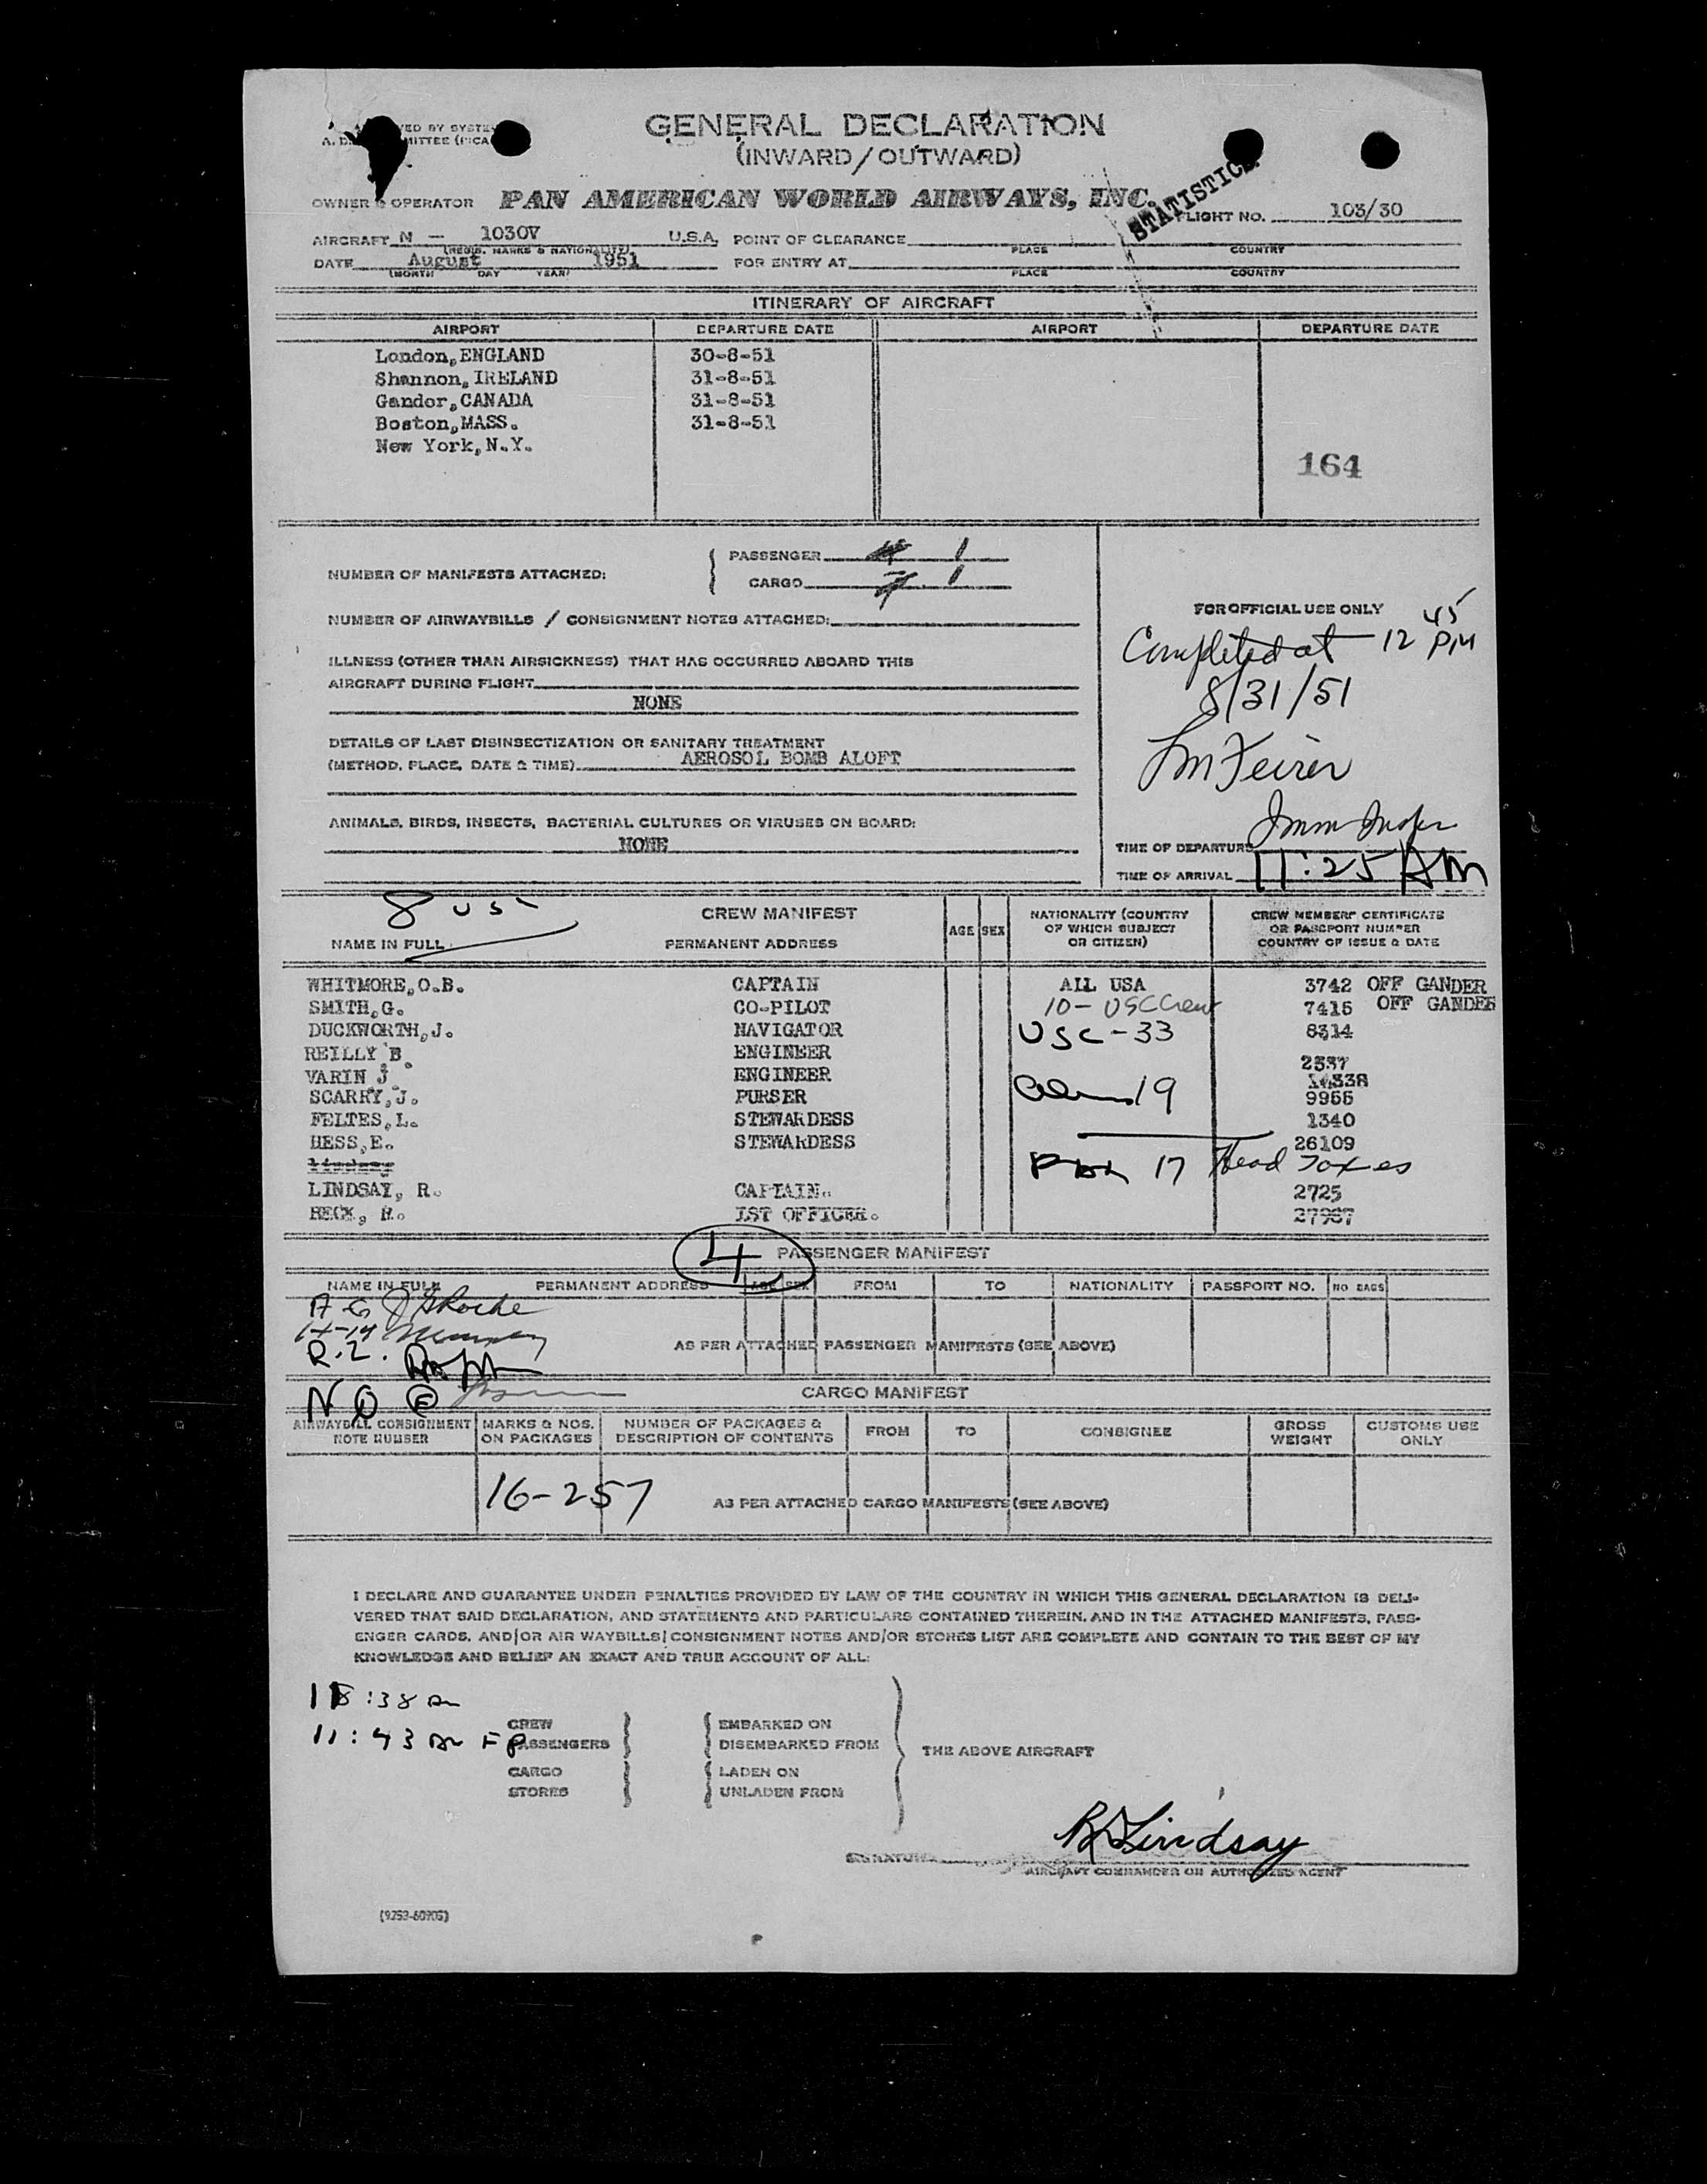 GENERAL DECLARATION
(INWARD/OUTWARD)
OWNER & OPERATOR PAN AMERICAN WORLD AIRWAYS, INC.
STATISTICS
FLIGHT NO. 103/30
AIRCRAFT N - 1030V U.S.A. POINT OF CLEARANCE
(REGIS. MARKS & NATIONALITY) PLACE COUNTRY
DATE August 1951 FOR ENTRY AT
(MONTH DAY YEAR) PLACE COUNTRY
ITINERARY OF AIRCRAFT
AIRPORT DEPARTURE DATE AIRPORT DEPARTURE DATE
London, ENGLAND 30-8-51
Shannon, IRELAND 31-8-51
Gandor, CANADA 31-8-51
Boston, MASS. 31-8-51
New York, N.Y.
164
NUMBER OF MANIFESTS ATTACHED: PASSENGER 1
CARGO 1
NUMBER OF AIRWAYBILLS / CONSIGNMENT NOTES ATTACHED:
ILLNESS (OTHER THAN AIRSICKNESS) THAT HAS OCCURRED ABOARD THIS
AIRCRAFT DURING FLIGHT
NONE
DETAILS OF LAST DISINSECTIZATION OR SANITARY TREATMENT
(METHOD, PLACE, DATE & TIME) AEROSOL BOMB ALOFT
ANIMALS, BIRDS, INSECTS, BACTERIAL CULTURES OR VIRUSES ON BOARD:
NONE
FOR OFFICIAL USE ONLY
Completed at 12 45 PM
8/31/51
TIME OF DEPARTURE
TIME OF ARRIVAL 11:25 AM
8 USC
CREW MANIFEST
NAME IN FULL PERMANENT ADDRESS AGE SEX NATIONALITY (COUNTRY OF WHICH SUBJECT OR CITIZEN) CREW MEMBERS CERTIFICATE OR PASSPORT NUMBER COUNTRY OF ISSUE & DATE
WHITMORE, O.B. CAPTAIN ALL USA 3742 OFF GANDER
SMITH, G. CO-PILOT 10 - USC Crew 7415 OFF GANDER
DUCKWORTH, J. NAVIGATOR USC - 33 8314
REILLY B. ENGINEER 2537
VARIN J. ENGINEER 14338
SCARRY, J. PURSER 19 9955
FELTES, L. STEWARDESS 1340
HESS, E. STEWARDESS 26109
17 Head Taxes
LINDSAY, R. CAPTAIN. 2725
BECK, R. 1ST OFFICER. 27987
4
PASSENGER MANIFEST
NAME IN FULL PERMANENT ADDRESS AGE SEX FROM TO NATIONALITY PASSPORT NO. NO BAGS
A-G
H-14
R-Z.
AS PER ATTACHED PASSENGER MANIFESTS (SEE ABOVE)
CARGO MANIFEST
AIRWAYBILL CONSIGNMENT NOTE NUMBER MARKS & NOS. ON PACKAGES NUMBER OF PACKAGES & DESCRIPTION OF CONTENTS FROM TO CONSIGNEE GROSS WEIGHT CUSTOMS USE ONLY
16-257 AS PER ATTACHED CARGO MANIFESTS (SEE ABOVE)
I DECLARE AND GUARANTEE UNDER PENALTIES PROVIDED BY LAW OF THE COUNTRY IN WHICH THIS GENERAL DECLARATION IS DELI-
VERED THAT SAID DECLARATION, AND STATEMENTS AND PARTICULARS CONTAINED THEREIN, AND IN THE ATTACHED MANIFESTS, PASS-
ENGER CARDS, AND/OR AIR WAYBILLS/CONSIGNMENT NOTES AND/OR STORES LIST ARE COMPLETE AND CONTAIN TO THE BEST OF MY
KNOWLEDGE AND BELIEF AN EXACT AND TRUE ACCOUNT OF ALL:
11:43 am
CREW EMBARKED ON
PASSENGERS DISEMBARKED FROM THE ABOVE AIRCRAFT
CARGO LADEN ON
STORES UNLADEN FROM
R Lindsay
SIGNATURE
AIRCRAFT COMMANDER OR AUTHORIZED AGENT